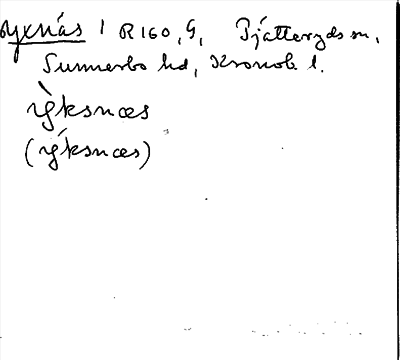 Yxnäs 1 R 160, G, Pjätteryds sn,
Sunnerbo hd, Kronob l.
ỳksnæs
(ýksnæs)